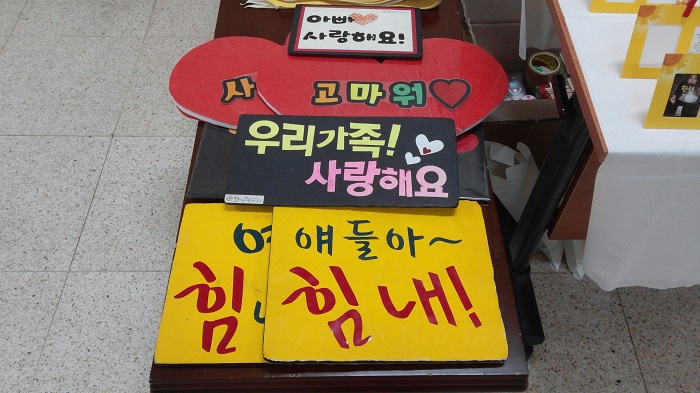 아빠
사랑해요!
사
고마워
우리가족!
사랑해요
힘
얘들아~
힘내!